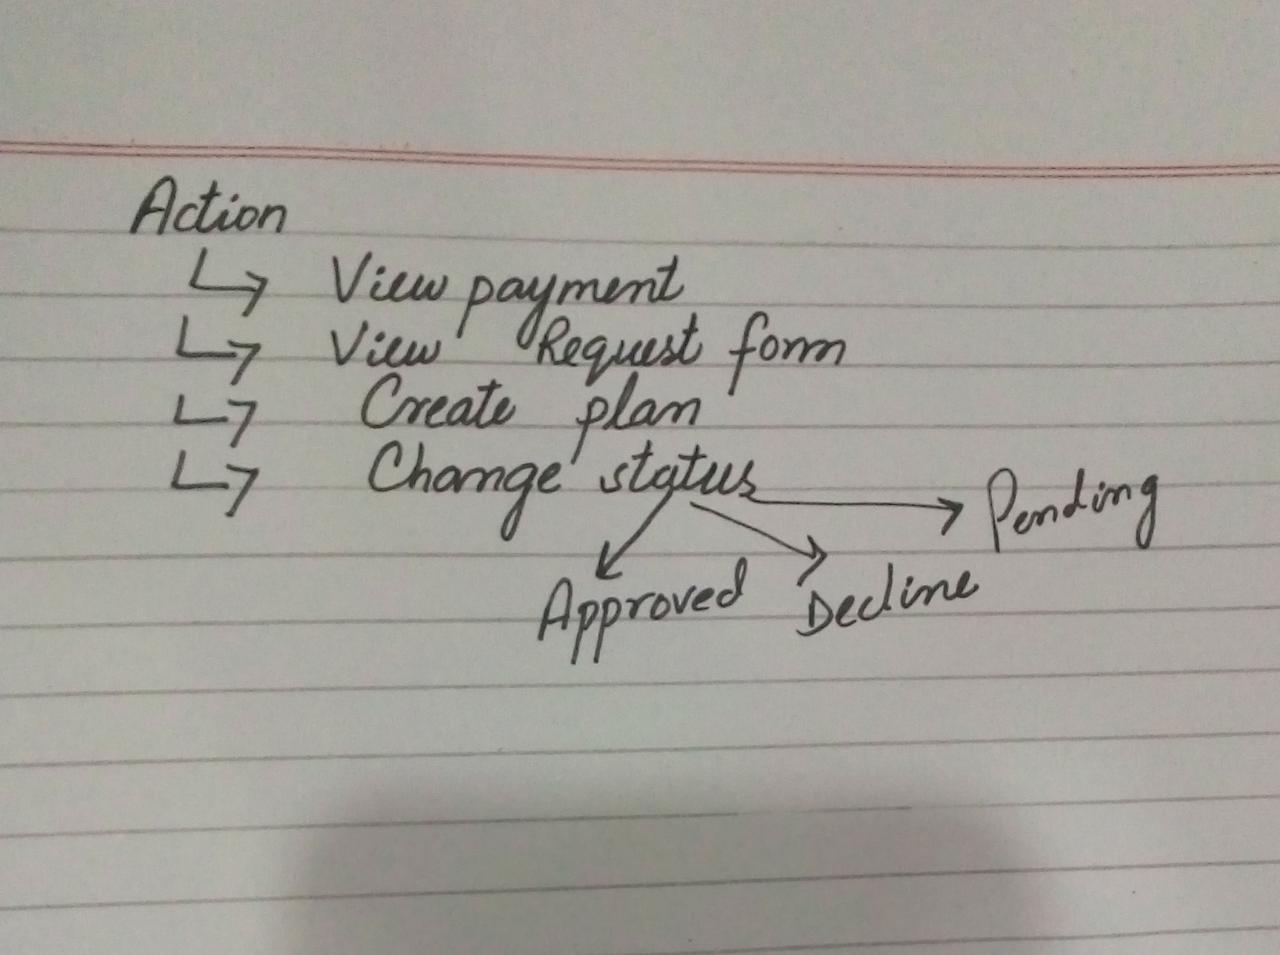 Action
↳ View payment
↳ View Request form
↳ Create plan
↳ Change status → Pending
Approved Decline